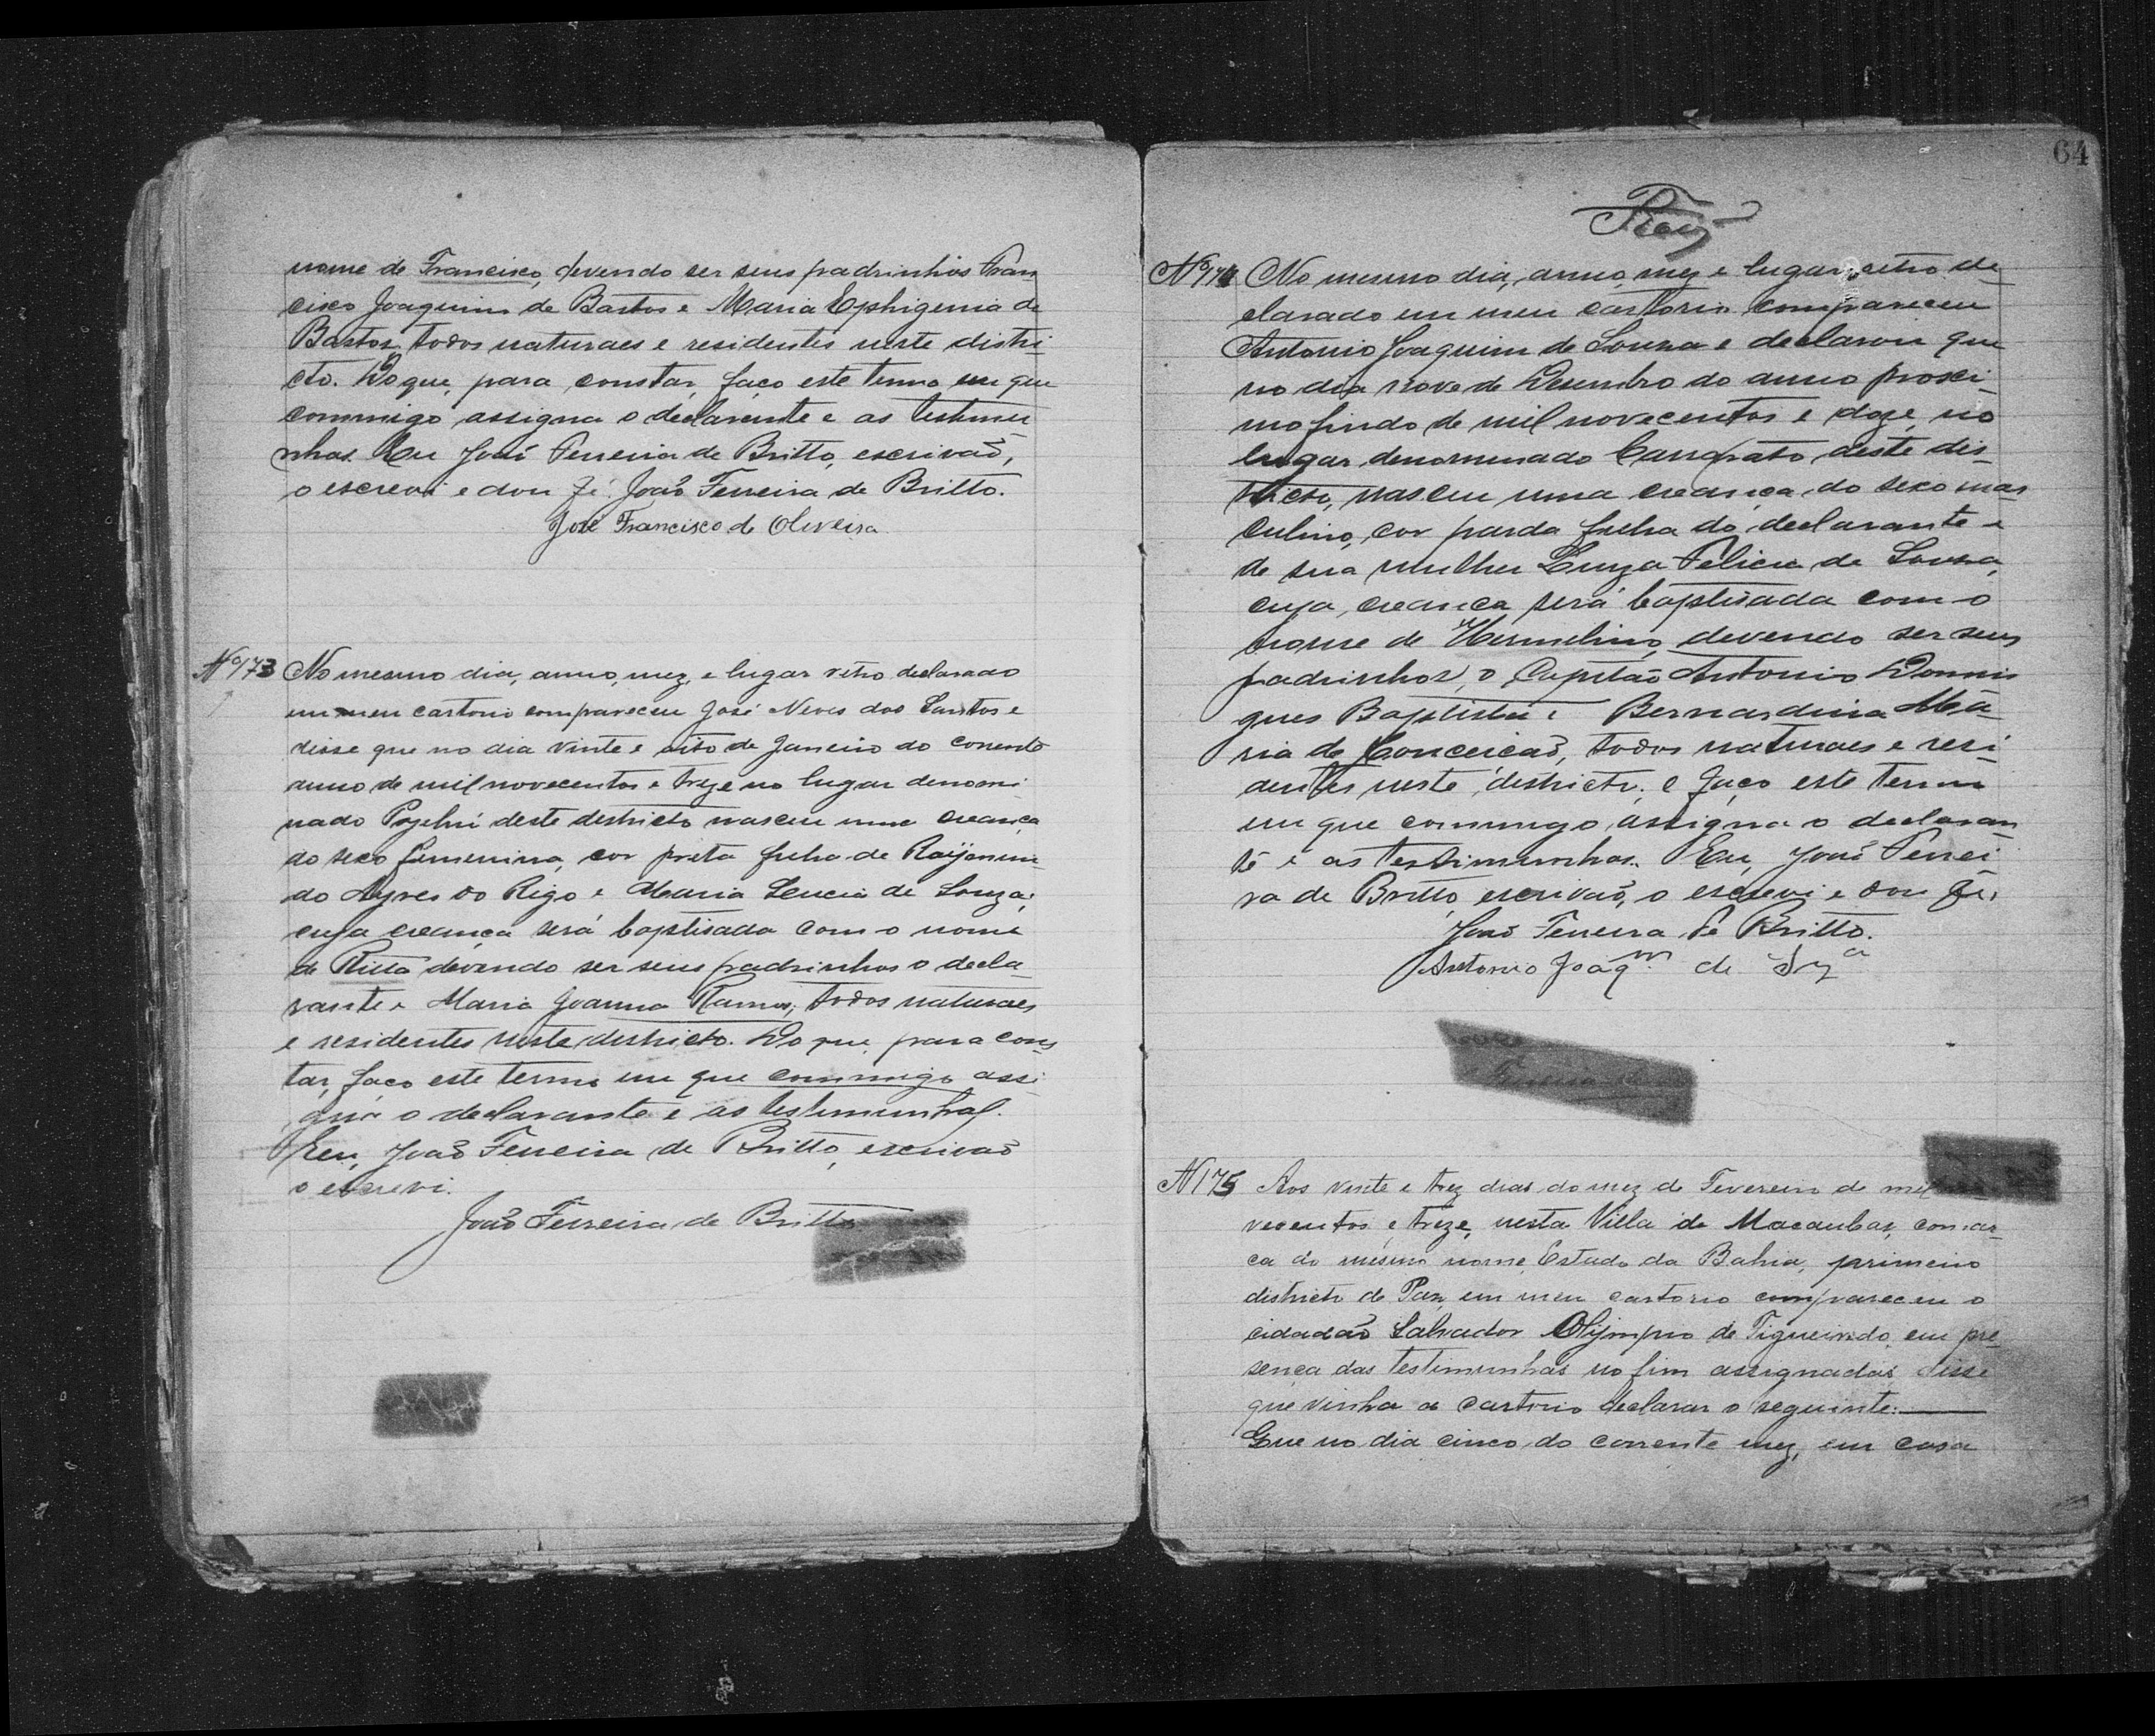 nome de Francisco, devendo ser seus padrinhos Fran
cisco Joaquim de Bastos e Maria Ephigenia de
Bastos, todos naturaes e residentes neste distri-
cto. Do que, para constar, faço este termo em que
commigo assigna o declarante e as testemu
nhas. Eu João Ferreira de Britto, escrivão,
o escrevi e dou fé. João Ferreira de Britto.
José Francisco de Oliveira
Nº 173 No mesmo dia, anno, mez, e lugar retro declarado
em meu cartorio compareceu José Neves dos Santos e
disse que no dia vinte e oito de Janeiro do corrente
anno de mil novecentos e treze no lugar denomi
nado deste destricto nasceu uma creança
do sexo femenina, cor preta filha de Raymun
do Ayres do Rego e Maria Lucia de Souza,
cuja creança será baptisada com o nome
de Ritta devendo ser seus padrinhos o decla
rante e Maria Joanna Ramos, todos naturaes
e residentes neste destricto. Do que, para cons
tar, faço este termo em que commigo assi
gna o declarante e as testimunhas.
Eu, João Ferreira de Britto, escrivão
o escrevi.
João Ferreira de Britto
64
Nº 174 No mesmo dia, anno, mez e lugar retro de
clarado em meu cartorio compareceu
Antonio Joaquim de Souza e declarou que
no dia nove de Desembro do anno proxi-
mo findo de mil novecentos e doze, no
lugar denominado deste dis-
tricto, nasceu uma creança do sexo mas
culino, cor parda filha do declarante e
de sua mulher Luiza Felicia de Souza,
cuja creança será baptisada com o
nome de Hermelino, devendo ser seus
padrinhos, o Capitão Antonio Domin
gues Baptista e Bernardina Ma-
ria da Conceição, todos naturaes e resi-
dentes neste districto. e faço este termo
em que commigo, assigna o declaran
te e as testimunhas. Eu, João Ferrei
ra de Britto, escrivão, o escrevi e dou fé.
João Ferreira de Britto.
Antonio Joaqm. de Sza
N 175 Aos vinte e trez dias do mez de Fevereiro de mil
vecentos e treze, nesta Villa de Macaubas, comar-
ca do mesmo nome, Estado da Bahia, primeiro
districto de Paz, em meu cartorio compareceu o
cidadão Salvador Olympio de Figueiredo, em pre-
sença das testimunhas no fim assignadas disse
que vinha a cartorio declarar o seguinte:
Que no dia cinco do corrente mez, em casa